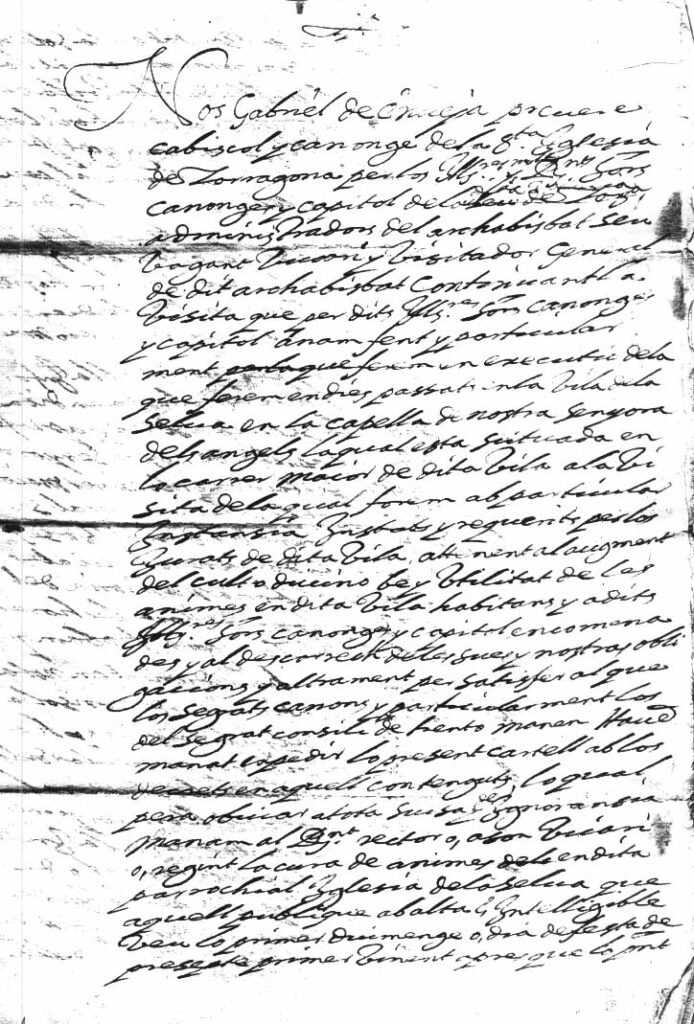 Nos Gabriel de Prevere
cabiscol y canonge dela Sta. Iglesia
de Tarragona per los Illes. y Rnts. Sors
canonges y capitol dela
administradors del archabisbat Seu
vagant Vicari y Visitador General
de dit archabisbat Continuant la
Visita que per dits Illres. Sors Canonges
y capitol anam fent y particular
ment en executio dela
que ferem en dies passats en la Vila dela
Selva en la capella de nostra Senyora
dels angels laqual esta situada en
lo carrer maior de dita Vila ala Vi
sita dela qual forem ab particular
Instansia Instats y requerits per los
Jurats de dita Vila attenent al augment
del culto divino be y Utilitat de les
animes en dita Vila habitans y a dits
Illres. Sors canonges y capitol encomena
des y al descarrech de les sues y nostras obli
gacions y altrament per satisfer al que
los Segrats canons y particularment los
del Segrat consili de trento manen Havem
manat expedir lo present cartell ab los
decrets en aquell contenguts, lo qual
pera obviar a tota Scusa de Ignoransia
manam al Rnt. rector o, a son Vicari
o, regint la cura de animes en dita
parrochial Iglesia dela Selva que
aquell publique ab alta e, Intelligible
Veu lo primer diumenge o, dia de festa de
precepte primer Vinent apres que lo pnt